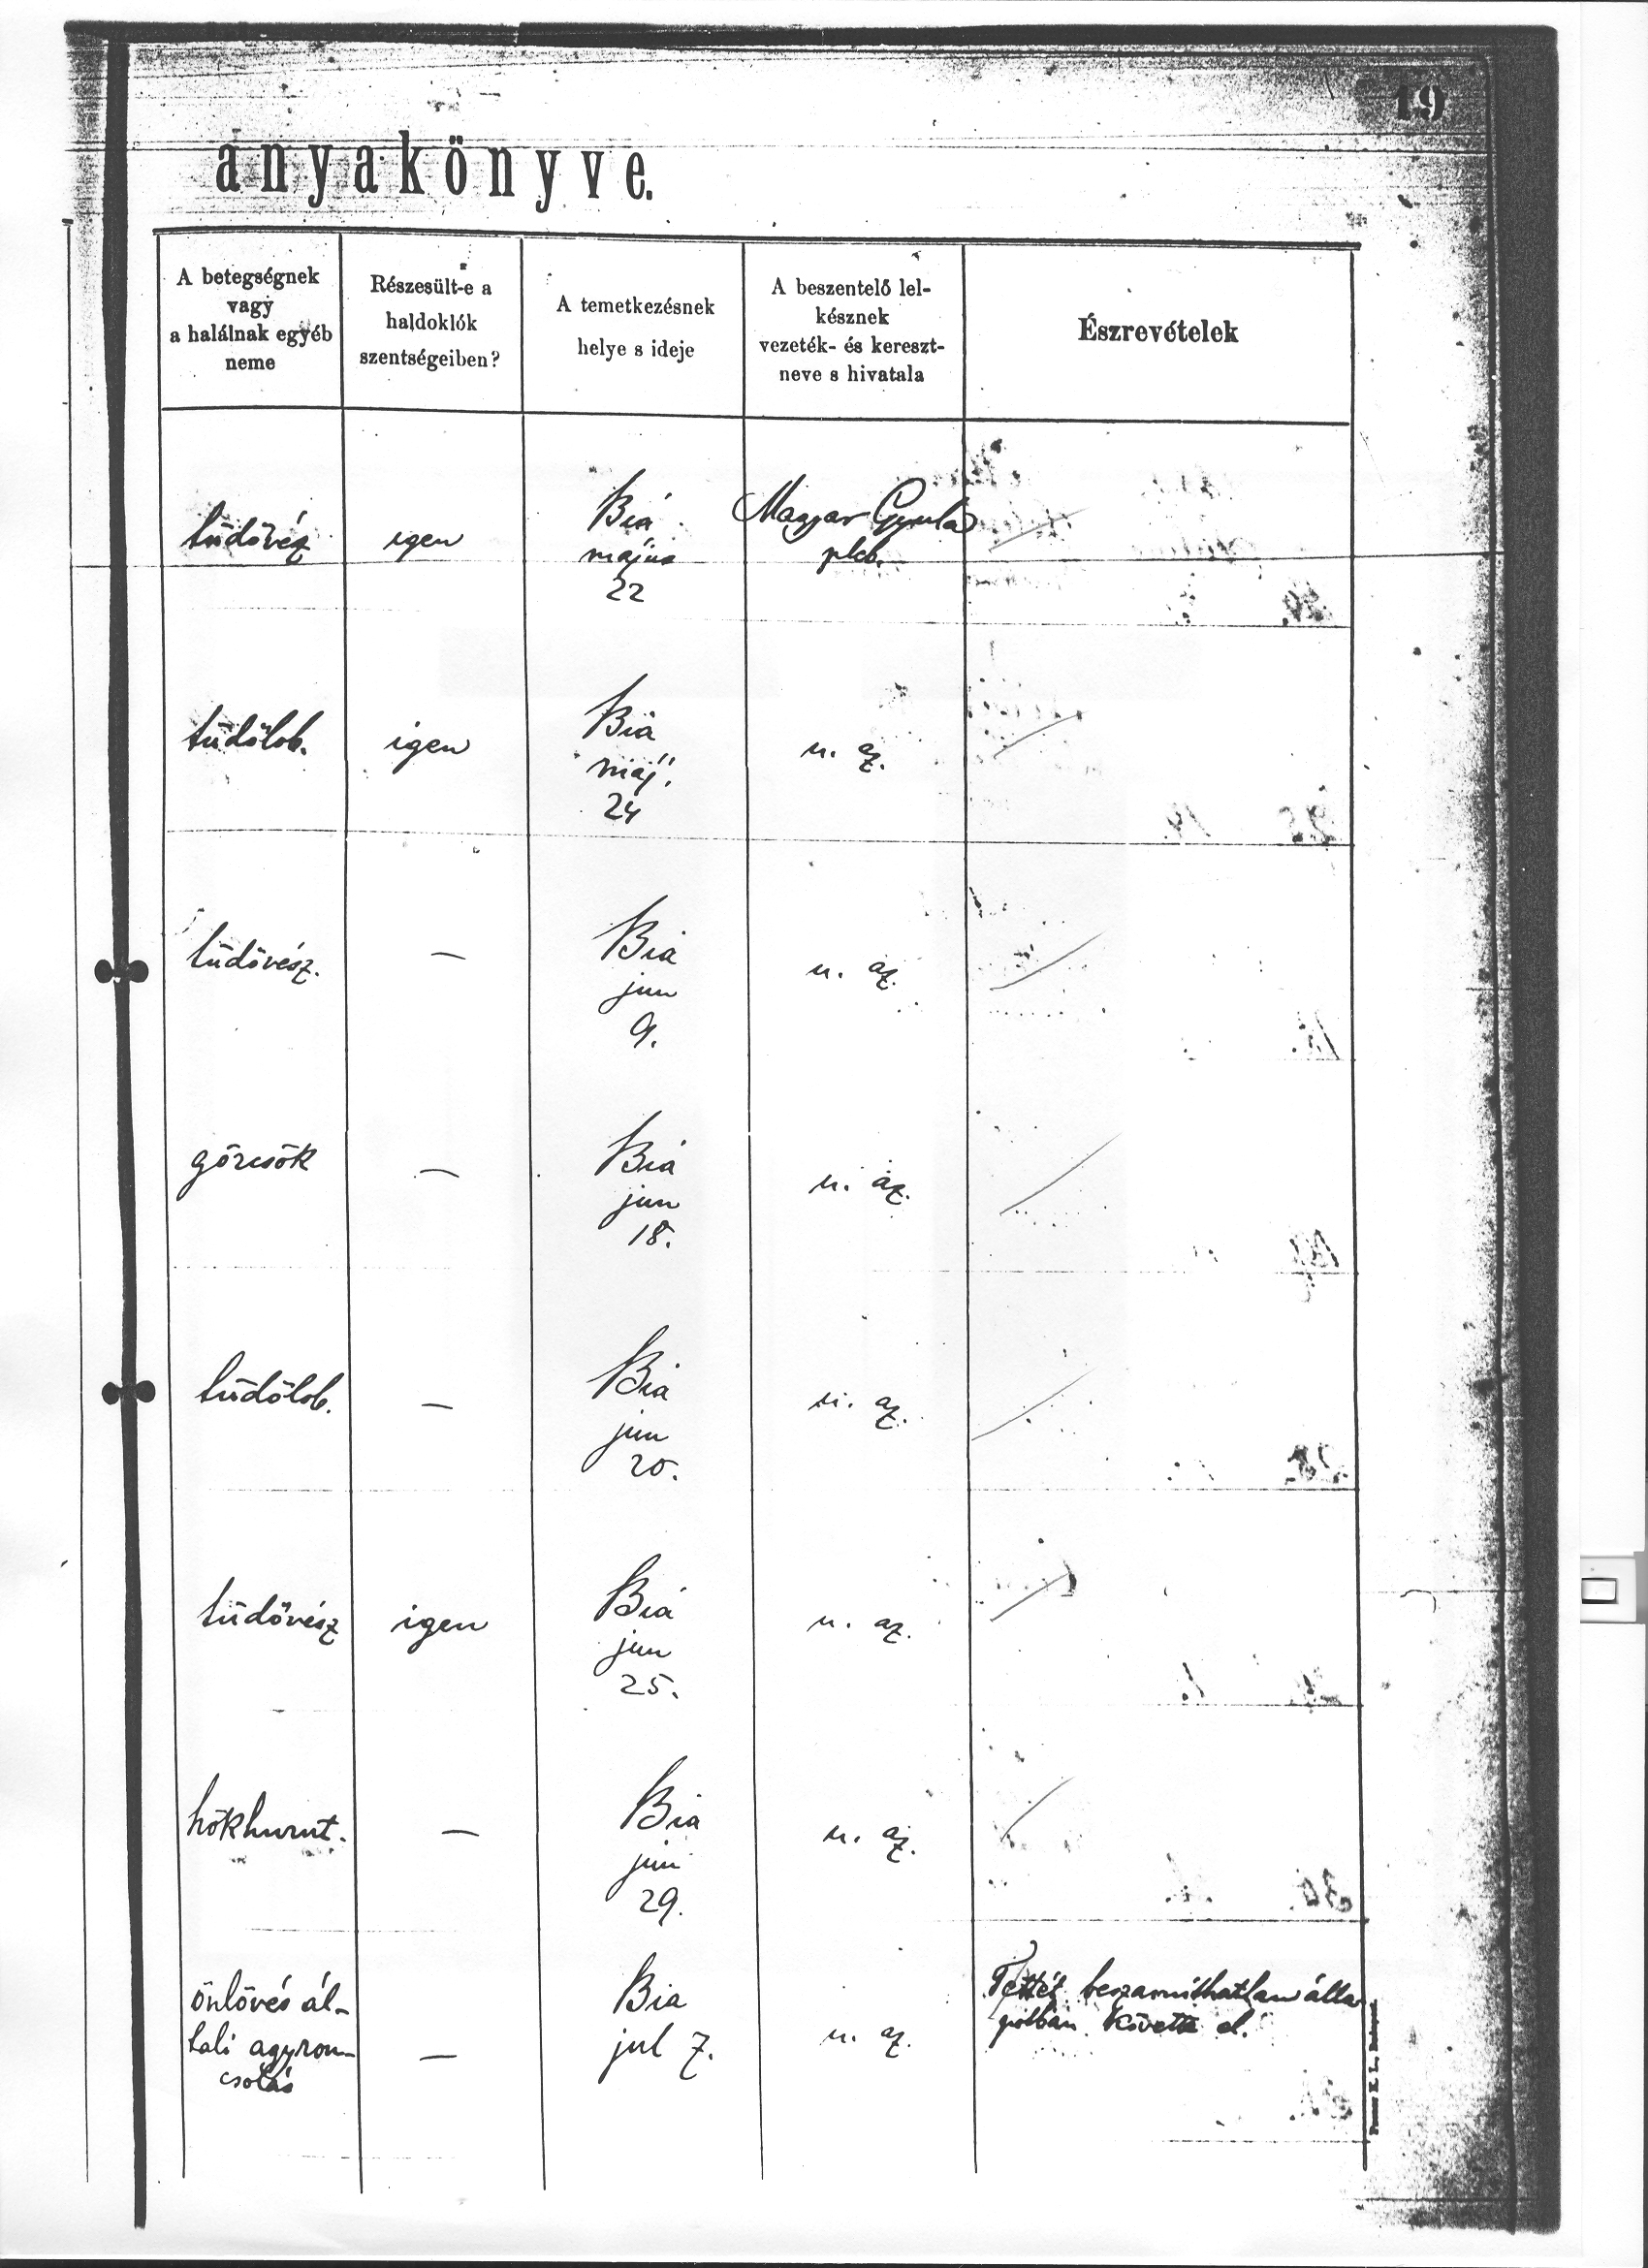 19
anyakönyve.
A betegségnek
vagy
a halálnak egyéb
neme
Részesült-e a
haldoklók
szentségeiben?
A temetkezésnek
helye s ideje
A beszentelő lel-
késznek
vezeték- és kereszt-
neve s hivatala
Észrevételek
tüdővész
igen
Bia
május
22
Magyar Gyula
pleb.
tüdőlob.
igen
Bia
máj.
24
u. az.
tüdővész.
—
Bia
jun
9.
u. az.
görcsök
—
Bia
jun
18.
u. az.
tüdőlob.
—
Bia
jun
20.
u. az.
tüdővész
igen
Bia
jun
25.
u. az.
hökhurut.
—
Bia
jun
29.
u. az.
önlövés ál-
tali agyron-
csolás
—
Bia
jul 7.
u. az.
Tettét beszamithatlan álla
potban követte el.